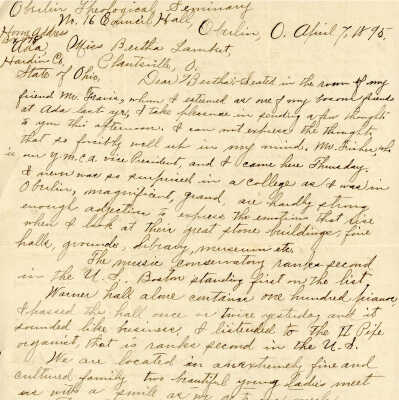 Oberlin Theological Seminary
No. 16 Council Hall,
Home Address
Oberlin, O. April 7, 1895.
Ada,
Miss Bertha Lambert,
Hardin Co,
Plantsville, O.
State of Ohio,
Dear Bertha: Seated in the room of my
friend Mr. Travis, whom I esteemed as one of my bosom friends
at Ada last yr, I take pleasure in sending a few thoughts
to you this afternoon. I can not express the thoughts
that so forcibly well up in my mind. Mr. who
is our Y.M.C.A vice President, and I came here Thursday.
I never was so surprised in a college as I was in
Oberlin, magnificent, grand, are hardly strong
enough adjectives to express the emotions that rise
when I look at their great stone buildings, fine
halls, grounds, library, museum etc.
The music conservatory ranks second
in the U.S. Boston standing first on the list
Warner hall alone contains one hundred pianos,
I passed the hall once or twice yesterday and it
sounded like business. I listened to the Pipe
organist, that is ranks second in the U.S.
We are located in an extremely fine and
cultured family two beautiful young ladies meet
us with a smile as we